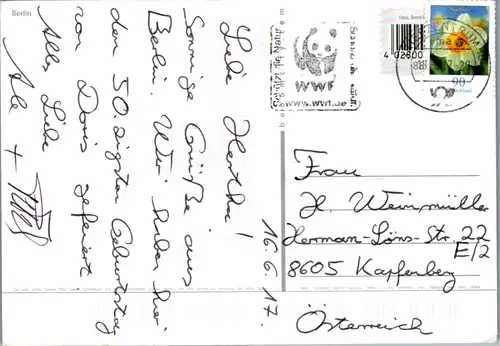 Berlin
Liebe Hertha!
Sonnige Grüße aus
Berlin. Wir haben hier
den 50.zigsten Geburtstag
von Doris gefeiert.
Alles Liebe
16.6.17.
WWF
www.wwf.de
4 02600
90
Frau
H. Weinmüller
Herman-Löns-Str. 22
E/2
8605 Kapfenberg
Österreich